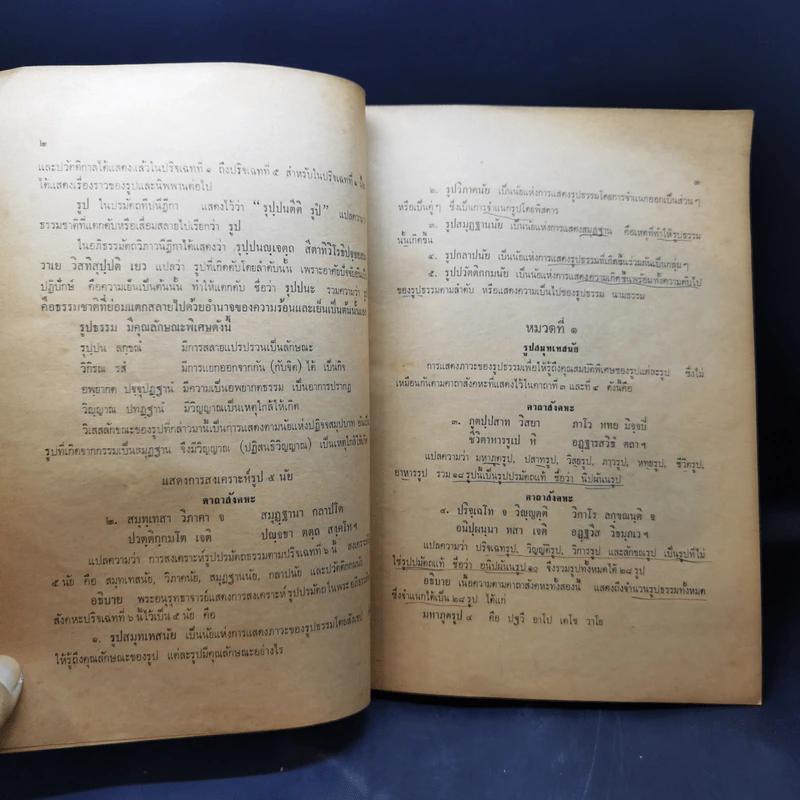 ๒
และปวัตติกาลได้แสดงแล้วในปริจเฉทที่ ๑ ถึงปริจเฉทที่ ๕ สำหรับในปริจเฉทที่ ๖
ได้แสดงเรื่องราวของรูปและนิพพานต่อไป
รูป ในปรมัตถทีปนีฎีกา แสดงไว้ว่า “รุปฺปนตีติ รูปํ” แปลความว่า
ธรรมชาติที่แตกดับหรือเสื่อมสลายไปเรียกว่า รูป
ในอภิธรรมัตถวิภาวนีฎีกาได้แสดงว่า รุปฺปนญฺเจตฺถ สีตาทิวิโรธิปจฺจย
วาเย วิสทิสุปฺปติ เยว แปลว่า รูปที่เกิดดับโดยลำดับนั้น เพราะอาศัยปัจจัยอัน
ปฏิปักษ์ คือความเย็นเป็นต้นนั้น ทำให้แตกดับ ชื่อว่า รุปปนะ รวมความว่า รูป
คือธรรมชาติที่ย่อมแตกสลายไปด้วยอำนาจของความร้อนและเย็นเป็นต้นนั้น
รูปธรรม มีคุณลักษณะพิเศษดังนี้
รุปฺปน ลกฺขณํ มีการสลายแปรปรวนเป็นลักษณะ
วิกิรณ รสํ มีการแยกออกจากกัน (กับจิต) ได้ เป็นกิจ
อพฺยากต ปจฺจุปฏฺฐานํ มีความเป็นอพยากตธรรม เป็นอาการปรากฏ
วิญฺญาณ ปทฏฺฐานํ มีวิญญาณเป็นเหตุใกล้ให้เกิด
วิเสสลักขณะของรูปที่กล่าวมานี้เป็นการแสดงตามนัยแห่งปฏิจจสมุปบาท
รูปที่เกิดจากกรรมเป็นสมุฏฐาน จึงมีวิญญาณ (ปฏิสนธิวิญญาณ) เป็นเหตุใกล้ให้เกิด
แสดงการสงเคราะห์รูป ๕ นัย
คาถาสังคหะ
๒. สมุทฺเทสา วิภาคา จ สมุฏฺฐานา กลาปโต
ปวตฺติกฺกมโต เจติ ปญฺจธา ตตฺถ สงฺคโหฯ
แปลความว่า การสงเคราะห์รูปปรมัตถธรรมตามปริจเฉทที่ ๖ นี้ สงเคราะห์
๕ นัย คือ สมุทเทสนัย, วิภาคนัย, สมุฏฐานนัย, กลาปนัย และปวัตติกกมนัย
อธิบาย พระอนุรุทธาจารย์แสดงการสงเคราะห์รูปปรมัตถในพระอภิธรรมัตถ
สังคหะปริจเฉทที่ ๖ นี้ไว้เป็น ๕ นัย คือ
๑. รูปสมุทเทสนัย เป็นนัยแห่งการแสดงภาวะของรูปธรรมโดยสังเขป
ให้รู้ถึงคุณลักษณะของรูป แต่ละรูปมีคุณลักษณะอย่างไร
๓
๒. รูปวิภาคนัย เป็นนัยแห่งการแสดงรูปธรรมโดยการจำแนกออกเป็นส่วนๆ
หรือเป็นคู่ๆ ซึ่งเป็นการจำแนกรูปโดยพิสดาร
๓. รูปสมุฏฐานนัย เป็นนัยแห่งการแสดงสมุฏฐาน คือเหตุที่ทำให้รูปธรรม
นั้นเกิดขึ้น
๔. รูปกลาปนัย เป็นนัยแห่งการแสดงรูปธรรมที่เกิดขึ้นร่วมกันเป็นกลุ่มๆ
๕. รูปปวัตติกกมนัย เป็นนัยแห่งการแสดงความเกิดขึ้นพร้อมทั้งความดับไป
ของรูปธรรมตามลำดับ หรือแสดงความเป็นไปของรูปธรรม นามธรรม
หมวดที่ ๑
รูปสมุทเทสนัย
การแสดงภาวะของรูปธรรมเพื่อให้รู้ถึงคุณสมบัติพิเศษของรูปแต่ละรูป ซึ่งไม่
เหมือนกันตามคาถาสังคหะที่แสดงไว้ในคาถาที่ ๓ และที่ ๔ ดังนี้คือ
คาถาสังคหะ
๓. ภูตปฺปสาท วิสยา ภาโว หทย มิจฺจปิ
ชีวิตาหารรูเป หิ อฏฺฐารสวิธํ ตถาฯ
แปลความว่า มหาภูตรูป, ปสาทรูป, วิสยรูป, ภาวรูป, หทยรูป, ชีวิตรูป,
อาหารรูป รวม ๑๘ รูปนี้เป็นรูปปรมัตถแท้ ชื่อว่า นิปผันนรูป
คาถาสังคหะ
๔. ปริจฺเฉโท จ วิญฺญตฺติ วิกาโร ลกฺขณนฺติ จ
อนิปฺผนฺนา ทสา เจติ อฏฺฐวีส วิธมฺภเวฯ
แปลความว่า ปริจเฉทรูป, วิญญัติรูป, วิการรูป และลักขณรูป เป็นรูปที่ไม่
ใช่รูปปมัตถแท้ ชื่อว่า อนิปผันนรูป ๑๐ จึงรวมรูปทั้งหมดได้ ๒๘ รูป
อธิบาย เนื้อความตามคาถาสังคหะทั้งสองนี้ แสดงถึงจำนวนรูปธรรมทั้งหมด
ซึ่งจำแนกได้เป็น ๒๘ รูป ได้แก่
มหาภูตรูป ๔ คือ ปฐวี อาโป เตโช วาโย